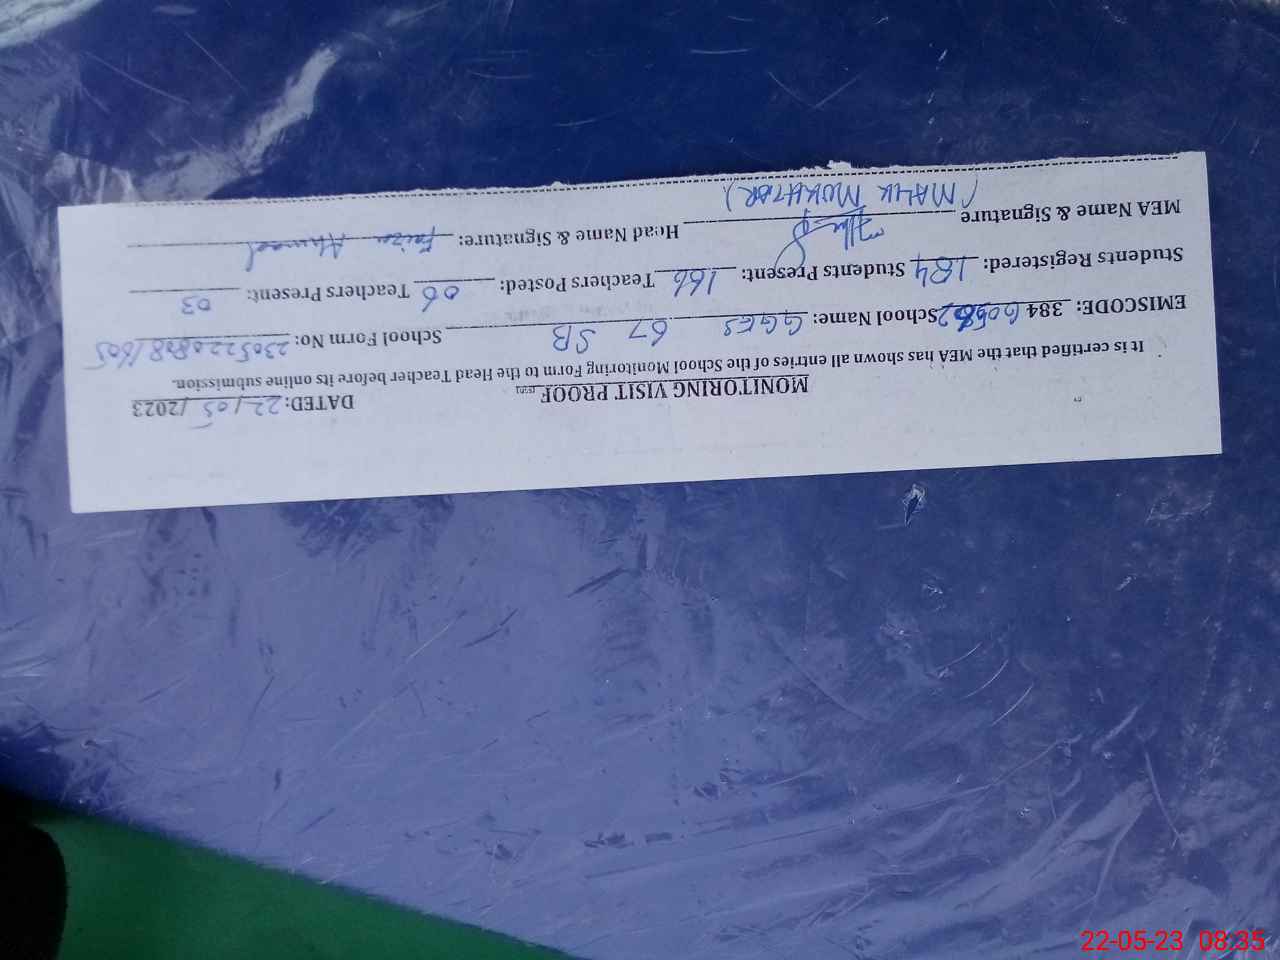 MONITORING VISIT PROOF
DATED: 22/05/2023
It is certified that the MEA has shown all entries of the School Monitoring Form to the Head Teacher before its online submission.
EMISCODE: 384 School Name: GGES 67 SB School Form No:
Students Registered: 184 Students Present: 166 Teachers Posted: 06 Teachers Present: 03
MEA Name & Signature Head Name & Signature: Faiza Ahmad
(MALIK MUKHTAR)
22-05-23 08:35